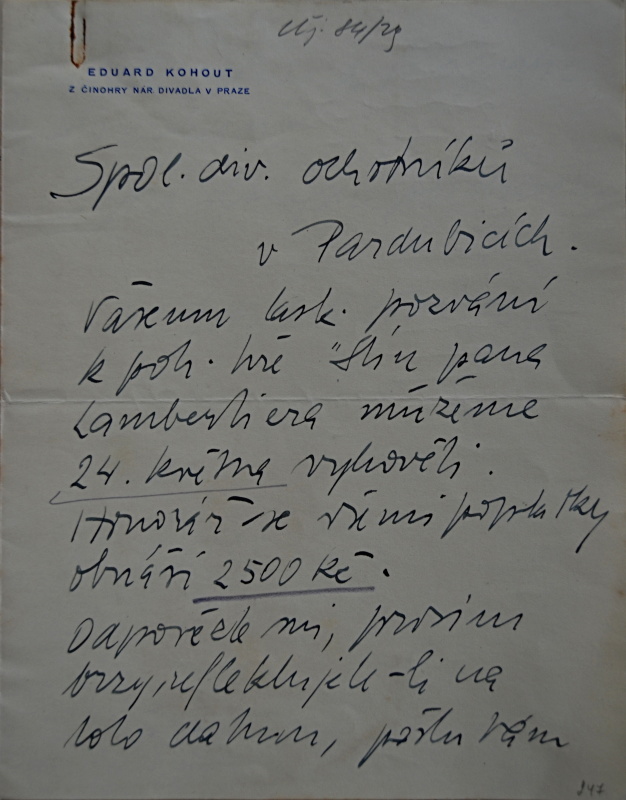 84/29
EDUARD KOHOUT
Z ČINOHRY NÁR. DIVADLA V PRAZE
Spol. div. ochotníků
v Pardubicích.
Vašemu lask. pozvání
k poh. hře "Stín pana
Lambertiera můžeme
24. května vyhověti.
Honorář se všemi poplatky
obnáší 2500 Kč.
Odpovězte mi, prosím
brzy, reflektujete-li na
toto datum, pošlu Vám
247